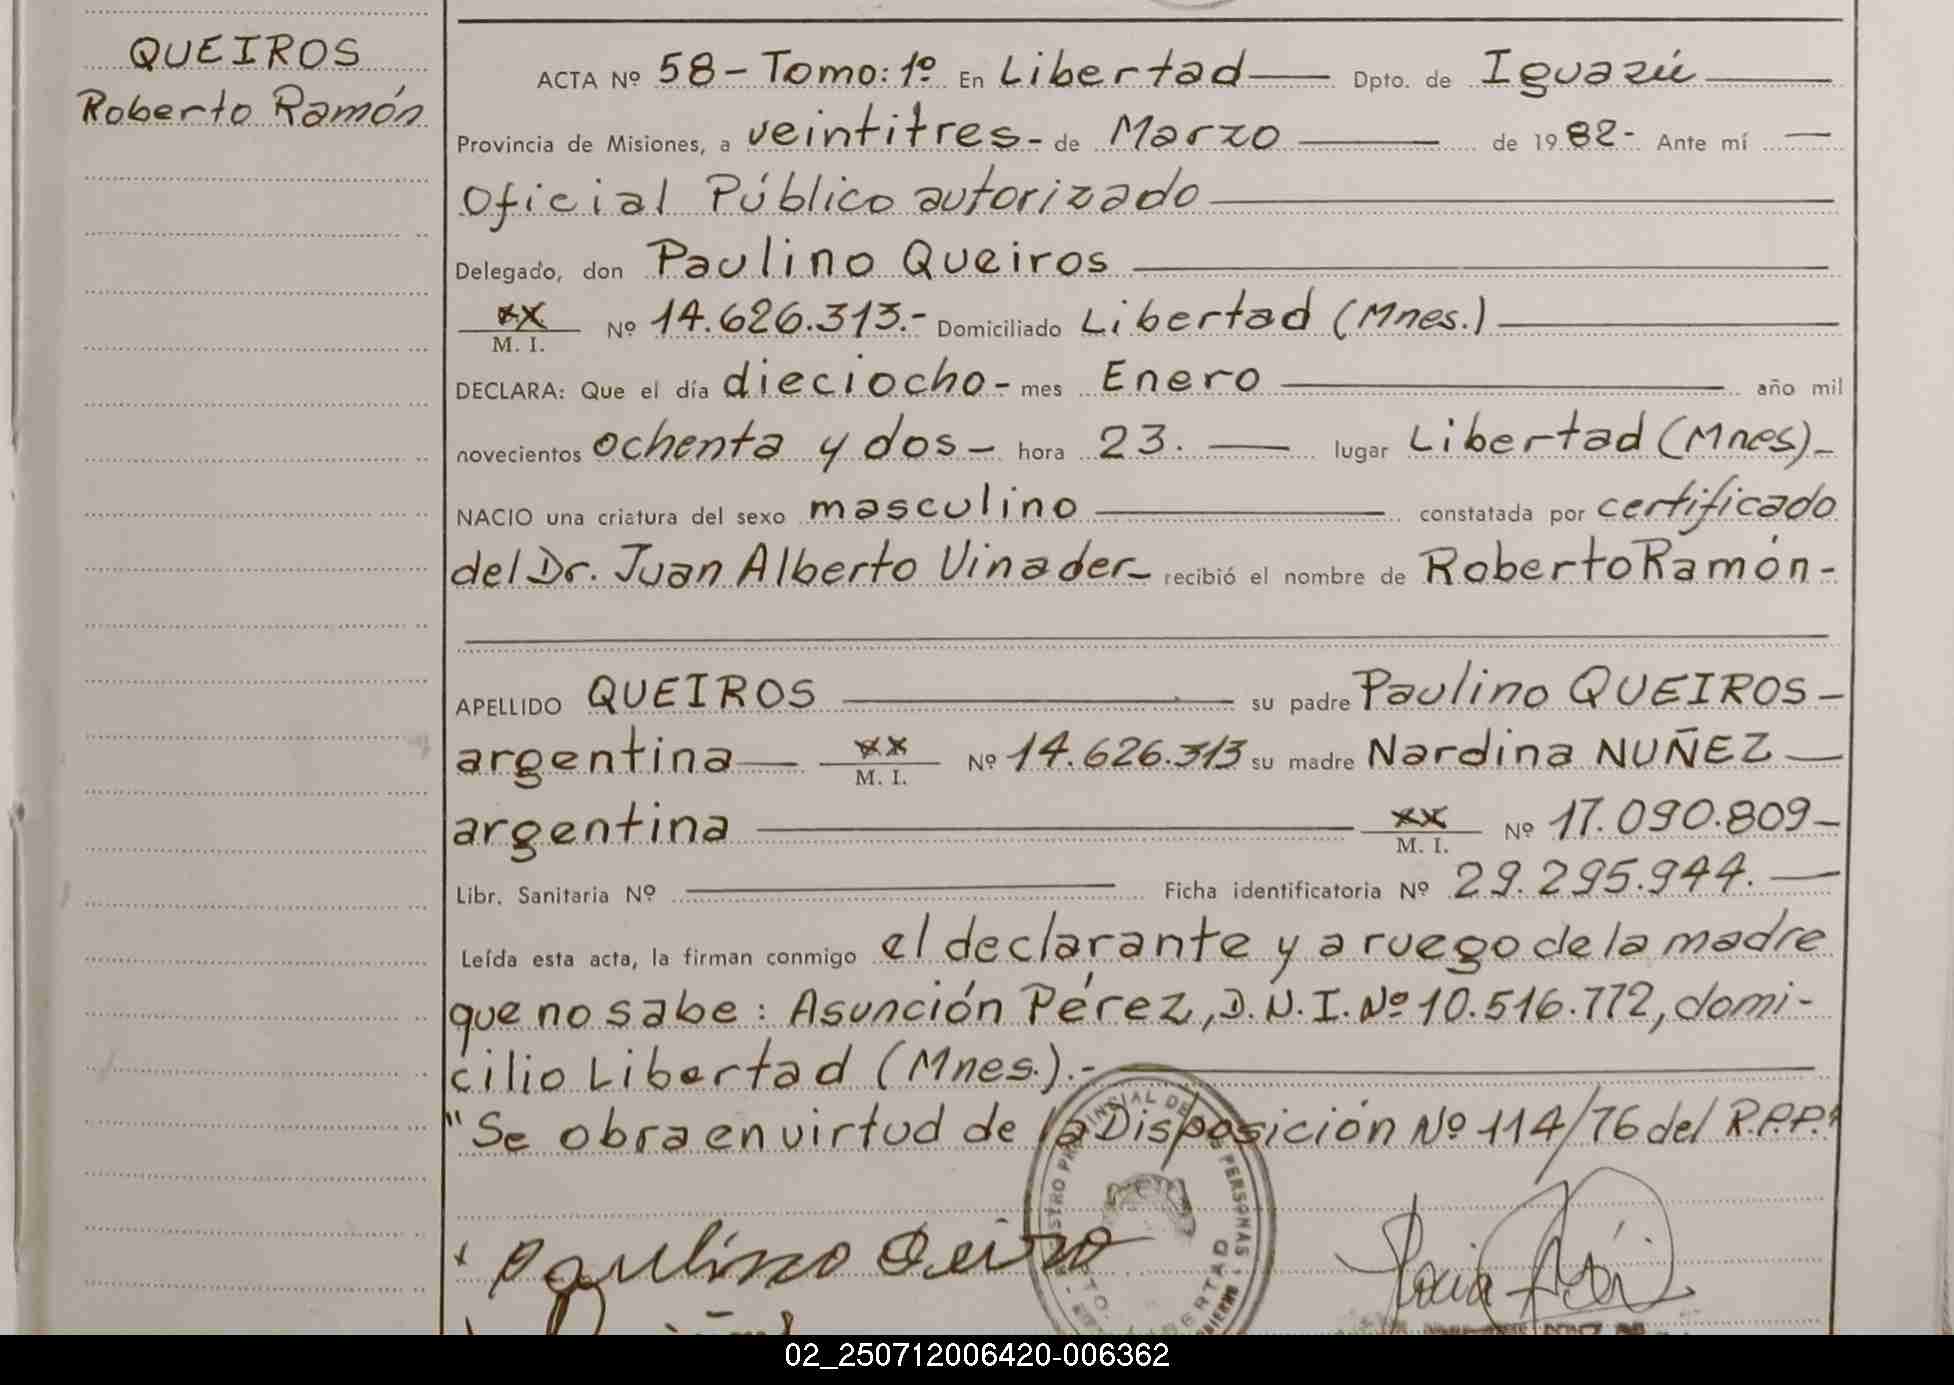 QUEIROS
Roberto Ramón
ACTA Nº 58 - Tomo: 1º En Libertad Dpto. de Iguazú
Provincia de Misiones, a veintitres - de Marzo de 1982 - Ante mí
Oficial Público autorizado
Delegado, don Paulino Queiros
xx M. I. Nº 14.626.313.- Domiciliado Libertad (Mnes.)
DECLARA: Que el día dieciocho - mes Enero año mil
novecientos ochenta y dos - hora 23. lugar Libertad (Mnes) -
NACIO una criatura del sexo masculino constatada por certificado
del Dr. Juan Alberto Vinader - recibió el nombre de Roberto Ramón -
APELLIDO QUEIROS su padre Paulino QUEIROS -
argentina xx M. I. Nº 14.626.313 su madre Nardina NUÑEZ
argentina xx M. I. Nº 17.090.809 -
Libr. Sanitaria Nº Ficha identificatoria Nº 29.295.944.
Leída esta acta, la firman conmigo el declarante y a ruego de la madre
que no sabe : Asunción Pérez, D.N.I. Nº 10.516.772, domi-
cilio Libertad (Mnes.).-
"Se obra en virtud de la Disposición Nº 114/76 del R.P.P."
PERSONAS
LIBERTAD
Paulino Qeiro
02_250712006420-006362